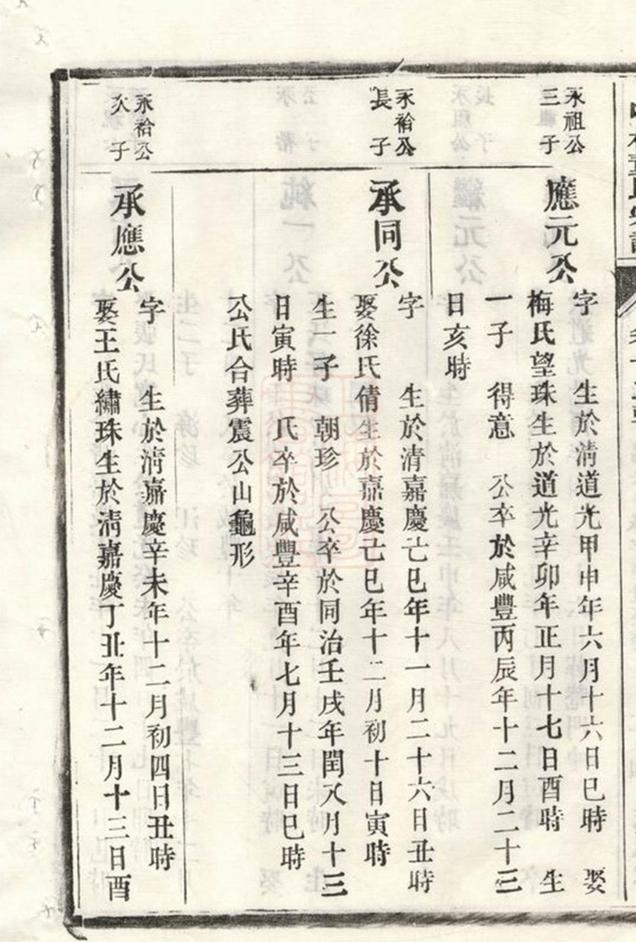 永祖公
三子
應元公
字　生於清道光甲申年六月十六日巳時　娶
梅氏望珠生於道光辛卯年正月十七日酉時　生
一子　得意　公卒於咸豐丙辰年十二月二十三
日亥時
永袷公
長子
承同公
字　生於清嘉慶己巳年十一月二十六日丑時
娶徐氏倩生於嘉慶己巳年十二月初十日寅時
生一子　朝珍　公卒於同治壬戌年閏八月十三
日寅時　氏卒於咸豐辛酉年七月十三日巳時
公氏合葬震公山龜形
永袷公
次子
承應公
字　生於清嘉慶辛未年十二月初四日丑時
娶王氏繡珠生於清嘉慶丁丑年十二月十三日酉